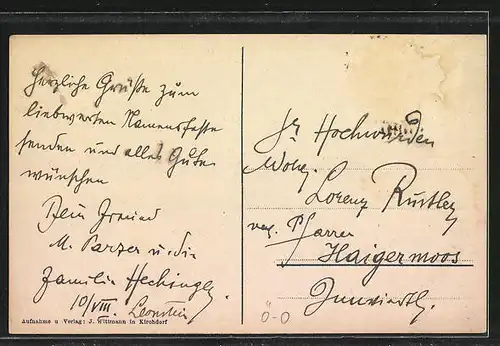 Herzliche Grüße zum
liebwerten Namensfeste
senden und alles Gute
wünschen
Dein Freund
M. Parzer u. die
Familie Hechinger
10/VIII.
Aufnahme u Verlag: J. Wittmann in Kirchdorf
Sr Hochwürden
Lorenz
Pfarrer
Haigermoos
Innviertl.
0-0